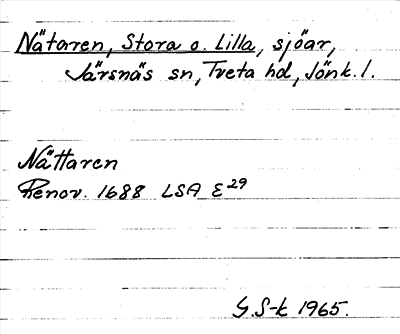 Nätaren, Stora o. Lilla, sjöar,
Järsnäs sn, Tveta hd, Jönk. l.
Nättaren
Renov. 1688 LSA E29
G.S-k 1965.